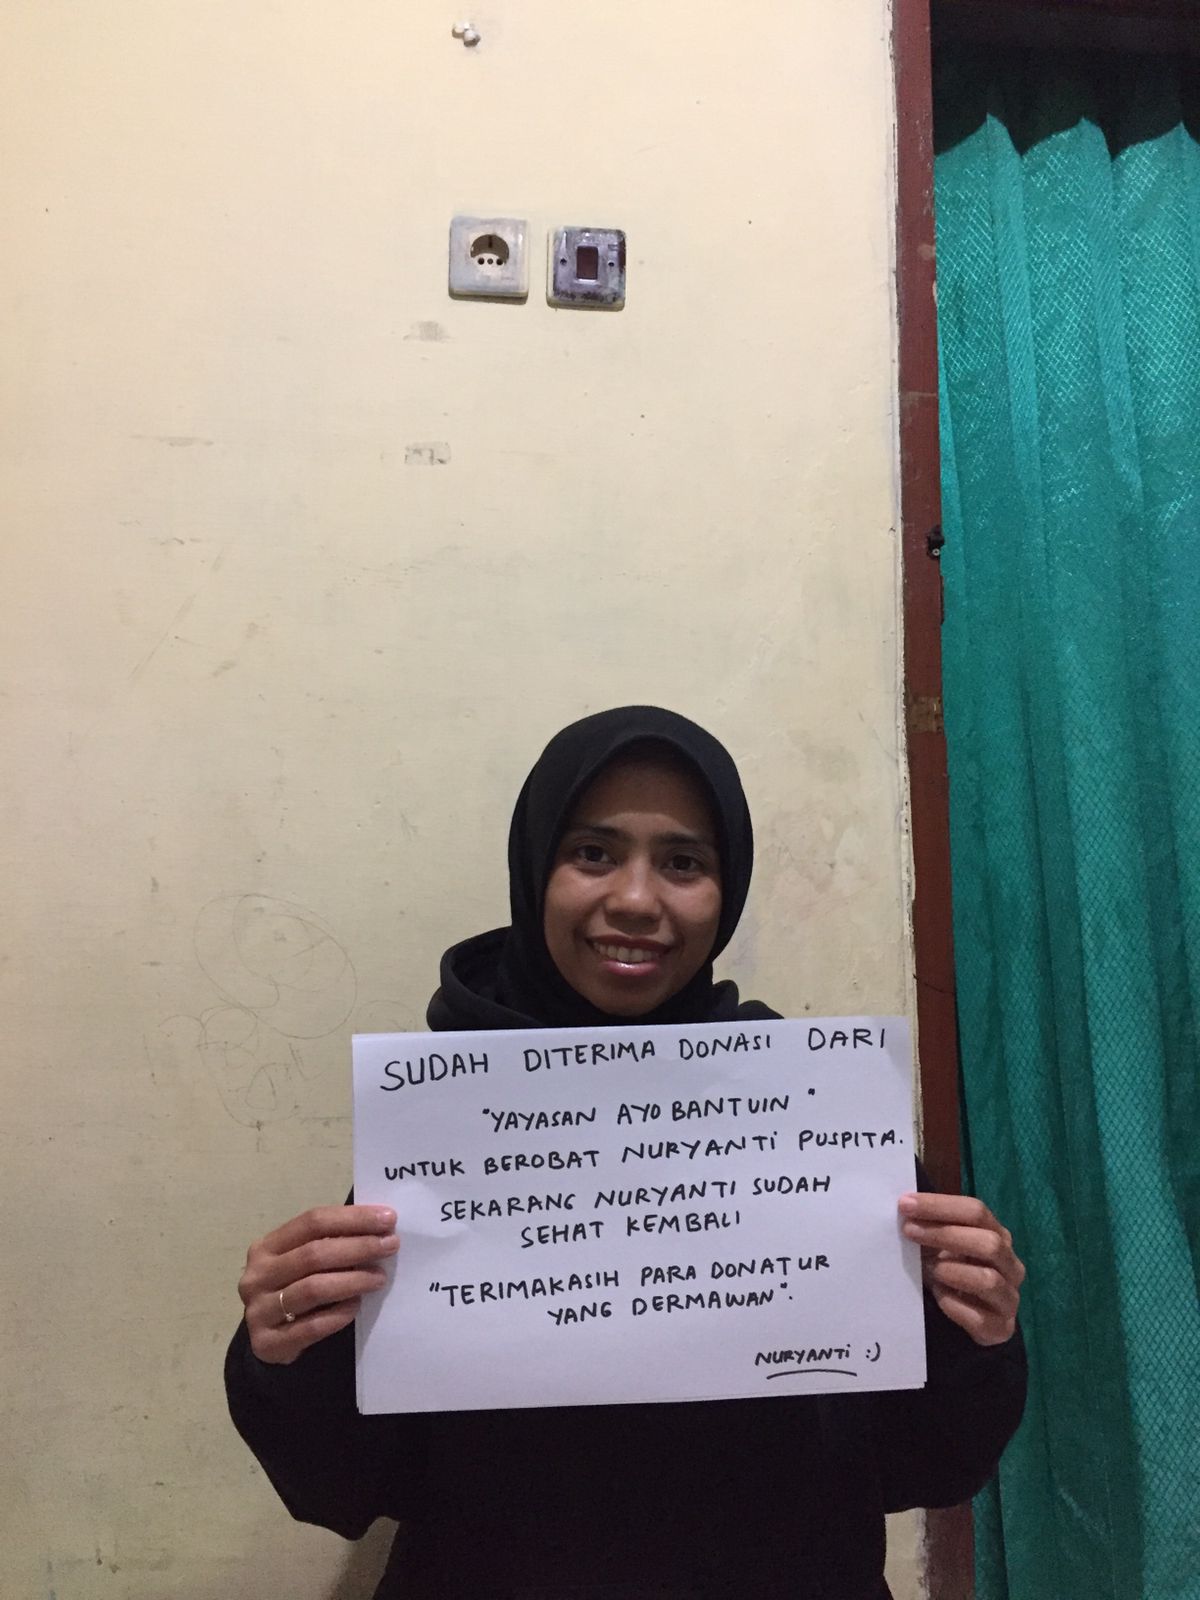 SUDAH DITERIMA DONASI DARI
"YAYASAN AYO BANTUIN"
UNTUK BEROBAT NURYANTI PUSPITA.
SEKARANG NURYANTI SUDAH
SEHAT KEMBALI
"TERIMAKASIH PARA DONATUR
YANG DERMAWAN".
NURYANTI :)